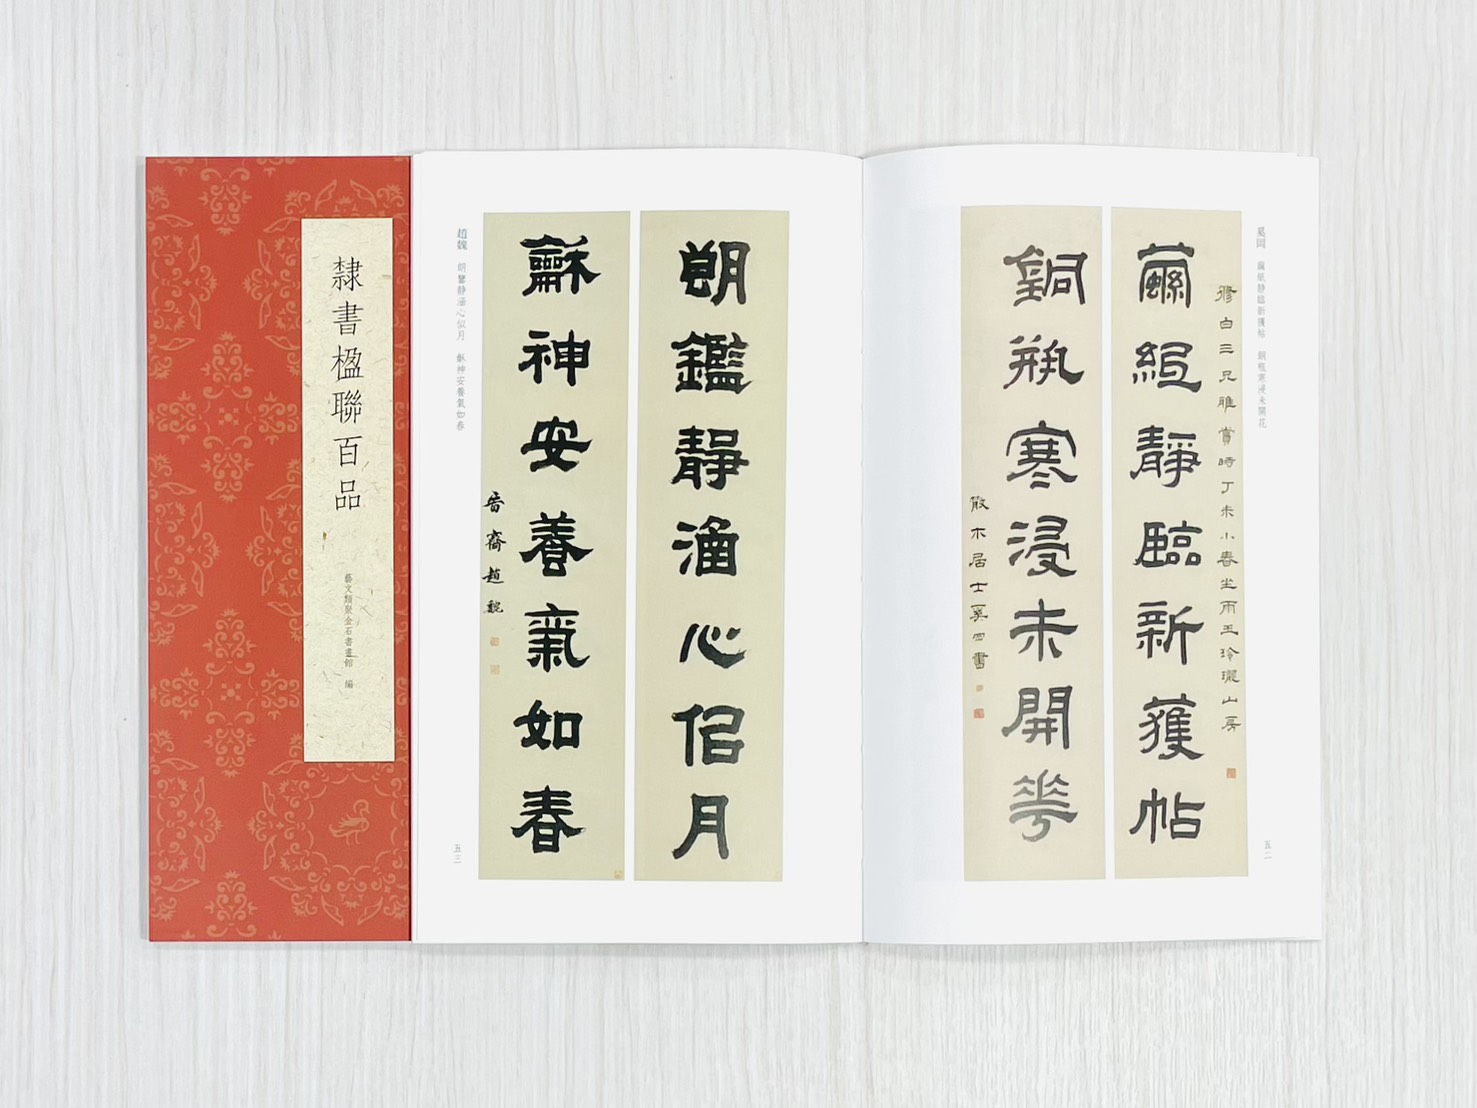 隸書楹聯百品
藝文類聚金石書畫館 編
奚岡 繭紙靜臨新獲帖 銅瓶寒浸未開花
修白三兄雅賞時丁未小春坐雨玉玲瓏山房
繭紙靜臨新獲帖
銅瓶寒浸未開花
散木居士奚岡書
五二
朗鑑靜涵心佀月
龢神安養氣如春
晉齋趙魏
趙魏 朗鑒靜涵心似月 龢神安養氣如春
五三